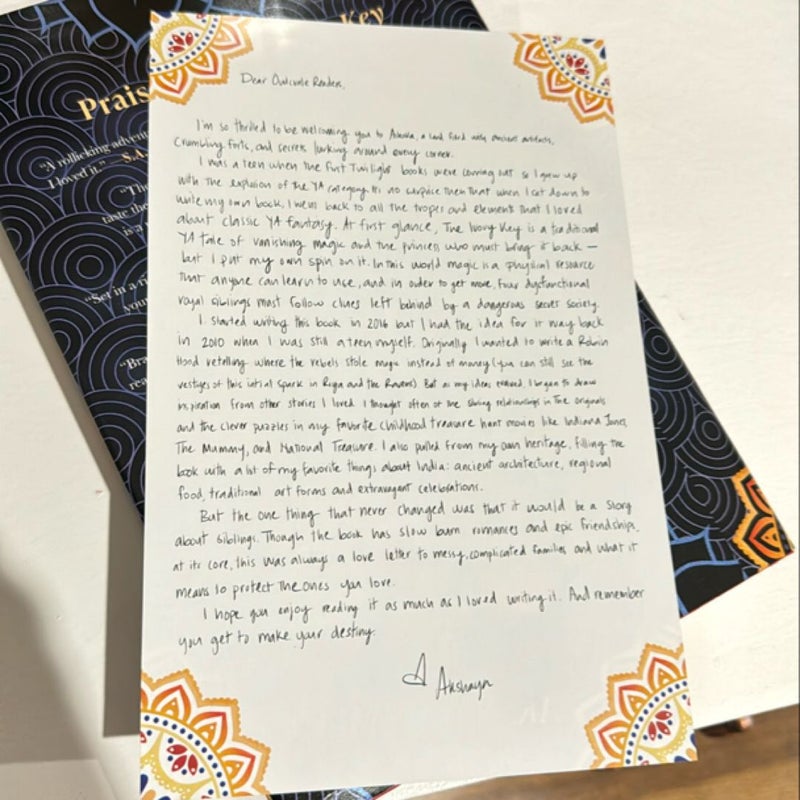 Key
Prais
"A rollicking advent
I loved it." —S.A.
"The
taste the
is a
"Set in a ri
your
"Bra
rea
Dear Owlcrate Readers,
I'm so thrilled to be welcoming you to Ashoka, a land filled with ancient artifacts,
Crumbling forts, and secrets lurking around every corner.
I was a teen when the first Twilight books were coming out so I grew up
with the explosion of the YA category. It's no surprise then that when I sat down to
write my own book, I went back to all the tropes and elements that I loved
about classic YA fantasy. At first glance, The Ivory Key is a traditional
YA tale of vanishing magic and the princess who must bring it back —
but I put my own spin on it. In this world magic is a physical resource
that anyone can learn to use, and in order to get more, four dysfunctional
royal siblings must follow clues left behind by a dangerous secret society.
I started writing this book in 2016 but I had the idea for it way back
in 2010 when I was still a teen myself. Originally I wanted to write a Robin
Hood retelling where the rebels stole magic instead of money (you can still see the
vestiges of this initial spark in Riya and the Ravens) But as my ideas evolved, I began to draw
inspiration from other stories I loved. I thought often of the sibling relationships in The Originals
and the clever puzzles in my favorite childhood treasure hunt movies like Indiana Jones,
The Mummy, and National Treasure. I also pulled from my own heritage, filling the
book with a lot of my favorite things about India: ancient architecture, regional
food, traditional art forms and extravagant celebrations.
But the one thing that never changed was that it would be a story
about siblings. Though the book has slow burn romances and epic friendships,
at its core, this was always a love letter to messy, complicated families and what it
means to protect the ones you love.
I hope you enjoy reading it as much as I loved writing it. And remember
you get to make your destiny.
Akshaya